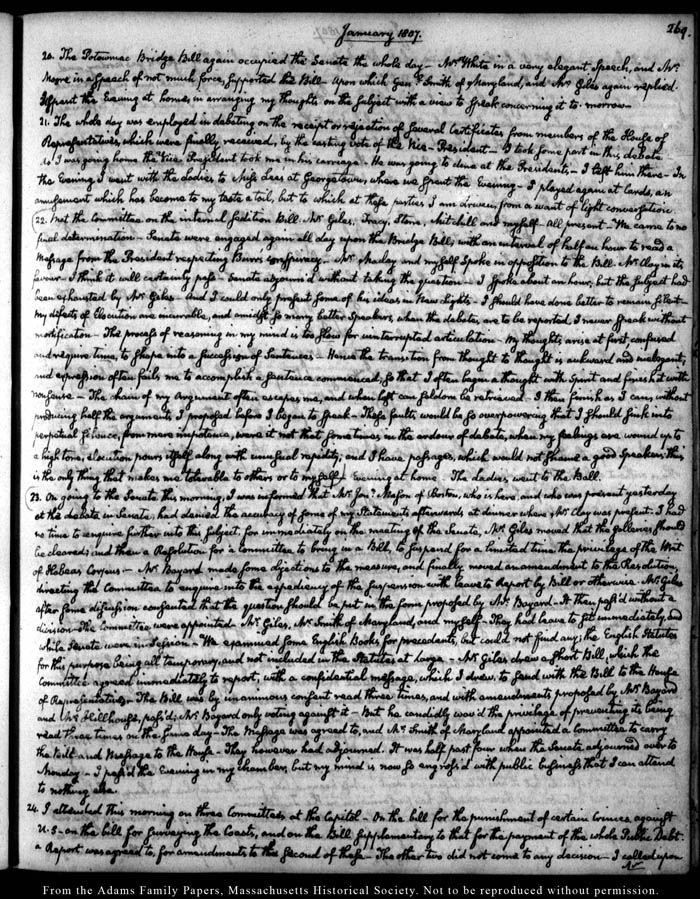 January 1807.
269.
20. The Potowmac Bridge Bill again occupied the Senate the whole day — Mr. White in a very elegant Speech, and Mr.
Moore in a Speech of not much force, supported the Bill — Upon which Genl. Smith of Maryland, and Mr. Giles again replied.
I spent the Evening at home, in arranging my thoughts on the subject with a view to speak concerning it to-morrow
21. The whole day was employed in debating on the receipt or rejection of several Certificates from members of the House of
Representatives, which were finally received, by the casting vote of the Vice-President — I took some part in this debate
As I was going home the Vice-President took me in his carriage — He was going to dine at the President's — I left him there — In
the Evening I went with the Ladies to Miss Lees at Georgetown, where we spent the Evening — I played again at cards, an
amusement which has become to my taste a toil, but to which at these parties I am driven from a want of light conversation
22. Met the Committee on the internal sedition Bill. Mr. Giles, Tracy, Stone, Mitchill and myself — All present — We came to no
final determination — Senate were engaged again all day upon the Bridge Bill; with an interval of half an hour to read a
Message from the President respecting Burr's conspiracy — Mr. Maclay and myself spoke in opposition to the Bill — Mr. Clay in its
favour — I think it will certainly pass — Senate adjourn'd without taking the question — I spoke about an hour; but the subject had
been exhausted by Mr. Giles — And I could only present some of his ideas in New Lights — I should have done better to remain silent —
My defects of Elocution are incurable, and amidst so many better Speakers, when the debates are to be reported I never speak without
mortification — The process of reasoning in my mind is too slow for uninterrupted articulation — My thoughts arise at first confused
and require time, to shape into a succession of Sentences — Hence the transition from thought to thought is aukward and inelegant;
and expression often fails me to accomplish a sentence commenced; so that I often begin a thought with Spirit and finish it with
nonsense — The chain of my Argument often escapes me, and when lost can seldom be retrieved — I then finish as I can, without
producing half the arguments, I proposed before I began to speak — These faults, would be so overpowering that I should sink into
perpetual silence, from mere impotence, were it not that sometimes in the ardour of debate, when my feelings are wound up to
a high tone, elocution pours itself along with unusual rapidity; and I have passages, which would not shame a good Speaker: this
is the only thing that makes me tolerable to others or to myself — Evening at home — The Ladies went to the Ball.
23. On going to the Senate this morning, I was informed that Mr. Jona. Mason of Boston, who is here, and who was present yesterday
at the debate in Senate, had denied the accuracy of some of my Statements afterwards at dinner where Mr. Clay was present — I had
no time to enquire further into this subject, for immediately on the meeting of the Senate, Mr. Giles moved that the galleries should
be cleared; and then a Resolution for a committee to bring in a Bill, to suspend for a limited time the privilege of the Writ
of Habeas Corpus — Mr. Bayard made some objections to the measure, and finally moved an amendment to the Resolution,
directing the Committee to enquire into the expediency of the suspension with leave to Report by Bill or otherwise — Mr. Giles
after some discussion consented that the question should be put in the form proposed by Mr. Bayard — It then pass'd without a
division — The Committee were appointed — Mr. Giles, Mr. Smith of Maryland, and myself — They had leave to sit immediately, and
while Senate were in Session — We examined some English Books for precedents, but could not find any; the English Statutes
for this purpose being all temporary, and not included in the Statutes at large — Mr. Giles drew a short Bill, which the
Committee agreed immediately to report, with a confidential message, which I drew, to send with the Bill to the House
of Representatives — The Bill was by unanimous consent read three times, and with amendments proposed by Mr. Bayard
and Mr. Hillhouse, pass'd; Mr. Bayard only voting against it — But he candidly wav'd the privilege of preventing its being
read three times on the same day — The Message was agreed to, and Mr. Smith of Maryland appointed a Committee to carry
the Bill and Message to the House — They however had adjourned. It was half past four when the Senate adjourned over to
Monday — I pass'd the Evening in my chamber, but my mind is now so engross'd with public business that I can attend
to nothing else.
24. I attended this morning on three Committees, at the Capitol — On the bill for the punishment of certain crimes against
U.S. — on the bill for surveying the Coasts, and on the Bill supplementary to that for the payment of the whole Public Debt.
a Report was agreed to, for amendments to the second of these — The other two did not come to any decision — I called upon
Mr
From the Adams Family Papers, Massachusetts Historical Society. Not to be reproduced without permission.